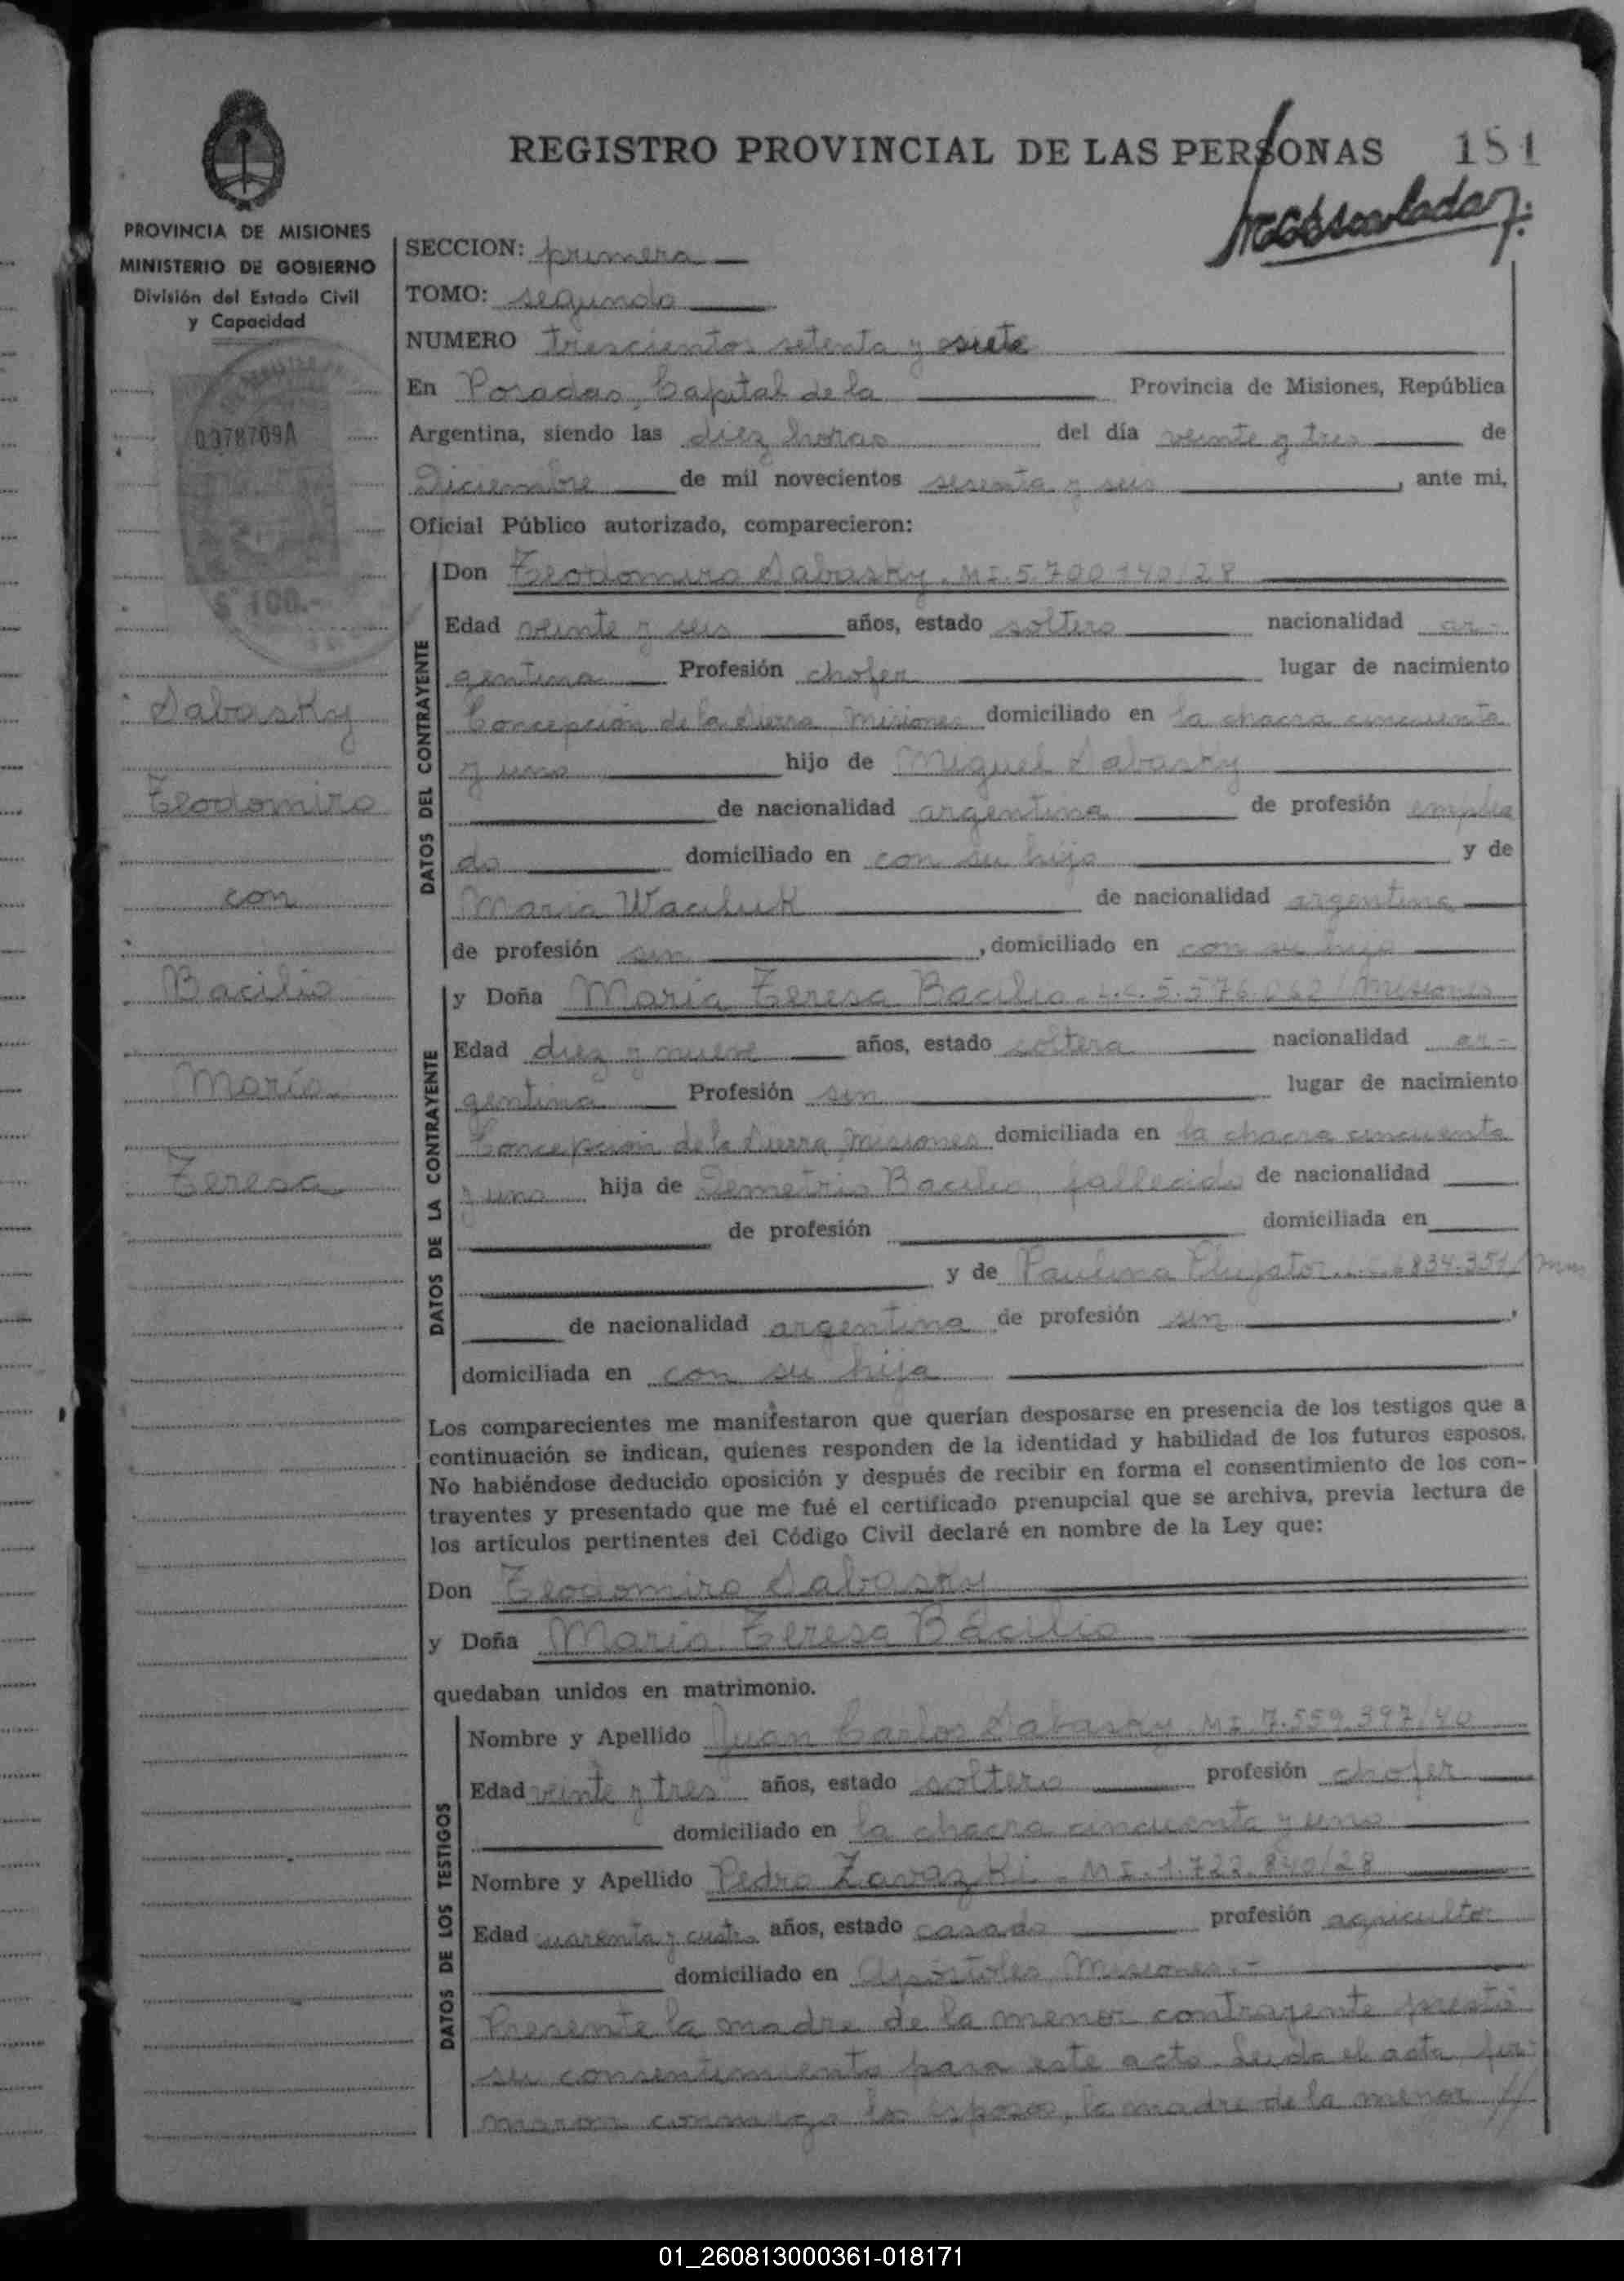 REGISTRO PROVINCIAL DE LAS PERSONAS 181
PROVINCIA DE MISIONES
MINISTERIO DE GOBIERNO
División del Estado Civil
y Capacidad
0378709A
$ 100.-
Sabasky
Teodomiro
con
Bacilio
María
Teresa
SECCION: primera
TOMO: segundo
NUMERO trescientos setenta y siete
En Posadas, Capital de la Provincia de Misiones, República
Argentina, siendo las diez horas del día veinte y tres de
Diciembre de mil novecientos sesenta y seis, ante mi,
Oficial Público autorizado, comparecieron:
DATOS DEL CONTRAYENTE
Don Teodomiro Sabasky. MI. 5.700.140/28
Edad veinte y seis años, estado soltero nacionalidad ar-
gentina Profesión chofer lugar de nacimiento
Concepción de la Sierra Misiones domiciliado en la chacra cincuenta
y uno hijo de Miguel Sabasky
de nacionalidad argentina de profesión emplea
do domiciliado en con su hijo y de
María Waciluk de nacionalidad argentina
de profesión sin, domiciliado en con su hijo
DATOS DE LA CONTRAYENTE
y Doña María Teresa Bacilio. L.C. 5.576.060/Misiones
Edad diez y nueve años, estado soltera nacionalidad ar-
gentina Profesión sin lugar de nacimiento
Concepción de la Sierra, Misiones domiciliada en la chacra cincuenta
y uno hija de Demetrio Bacilio, fallecido de nacionalidad
de profesión domiciliada en
y de Paulina 834.351/
de nacionalidad argentina de profesión sin,
domiciliada en con su hija
Los comparecientes me manifestaron que querían desposarse en presencia de los testigos que a
continuación se indican, quienes responden de la identidad y habilidad de los futuros esposos.
No habiéndose deducido oposición y después de recibir en forma el consentimiento de los con-
trayentes y presentado que me fué el certificado prenupcial que se archiva, previa lectura de
los artículos pertinentes del Código Civil declaré en nombre de la Ley que:
Don Teodomiro Sabasky
y Doña María Teresa Bacilio
quedaban unidos en matrimonio.
DATOS DE LOS TESTIGOS
Nombre y Apellido Juan Carlos Sabasky. MI. 7.559.397/40
Edad veinte y tres años, estado soltero profesión chofer
domiciliado en la chacra cincuenta y uno
Nombre y Apellido Pedro Zavazki - MI. 1.722.840/28
Edad cuarenta y cuatro años, estado casado profesión agricultor
domiciliado en Apóstoles Misiones.-
Presente la madre de la menor contrayente prestó
su consentimiento para este acto. Leída el acta, fir-
maron conmigo los esposos, la madre de la menor //
01_260813000361-018171